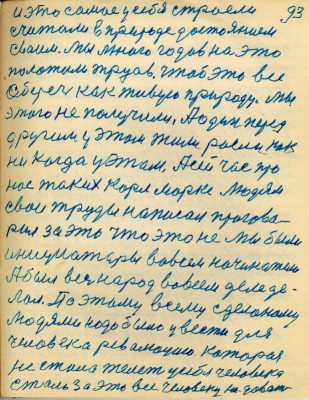 и это самое у себя строели 93
считали в природе достоянием
своим. Мы много годов на это
положили трудов, чтоб это все
сберечь как живую природу. Мы
этого не получили, Людям перед
другим у этом жили росли как
ни когда у этам, А сичас про
нас таких Карл Маркс людям
свои труды написал прогова-
рил за это что это не мы были
инициаторы вовсем начинании
А был весь народ вовсем деле де-
лал. Поэтому всему сделаному
людями надо было увести для
человека революцию. Которая
не стала телет у себя человека
стал за это все человеку на доват-